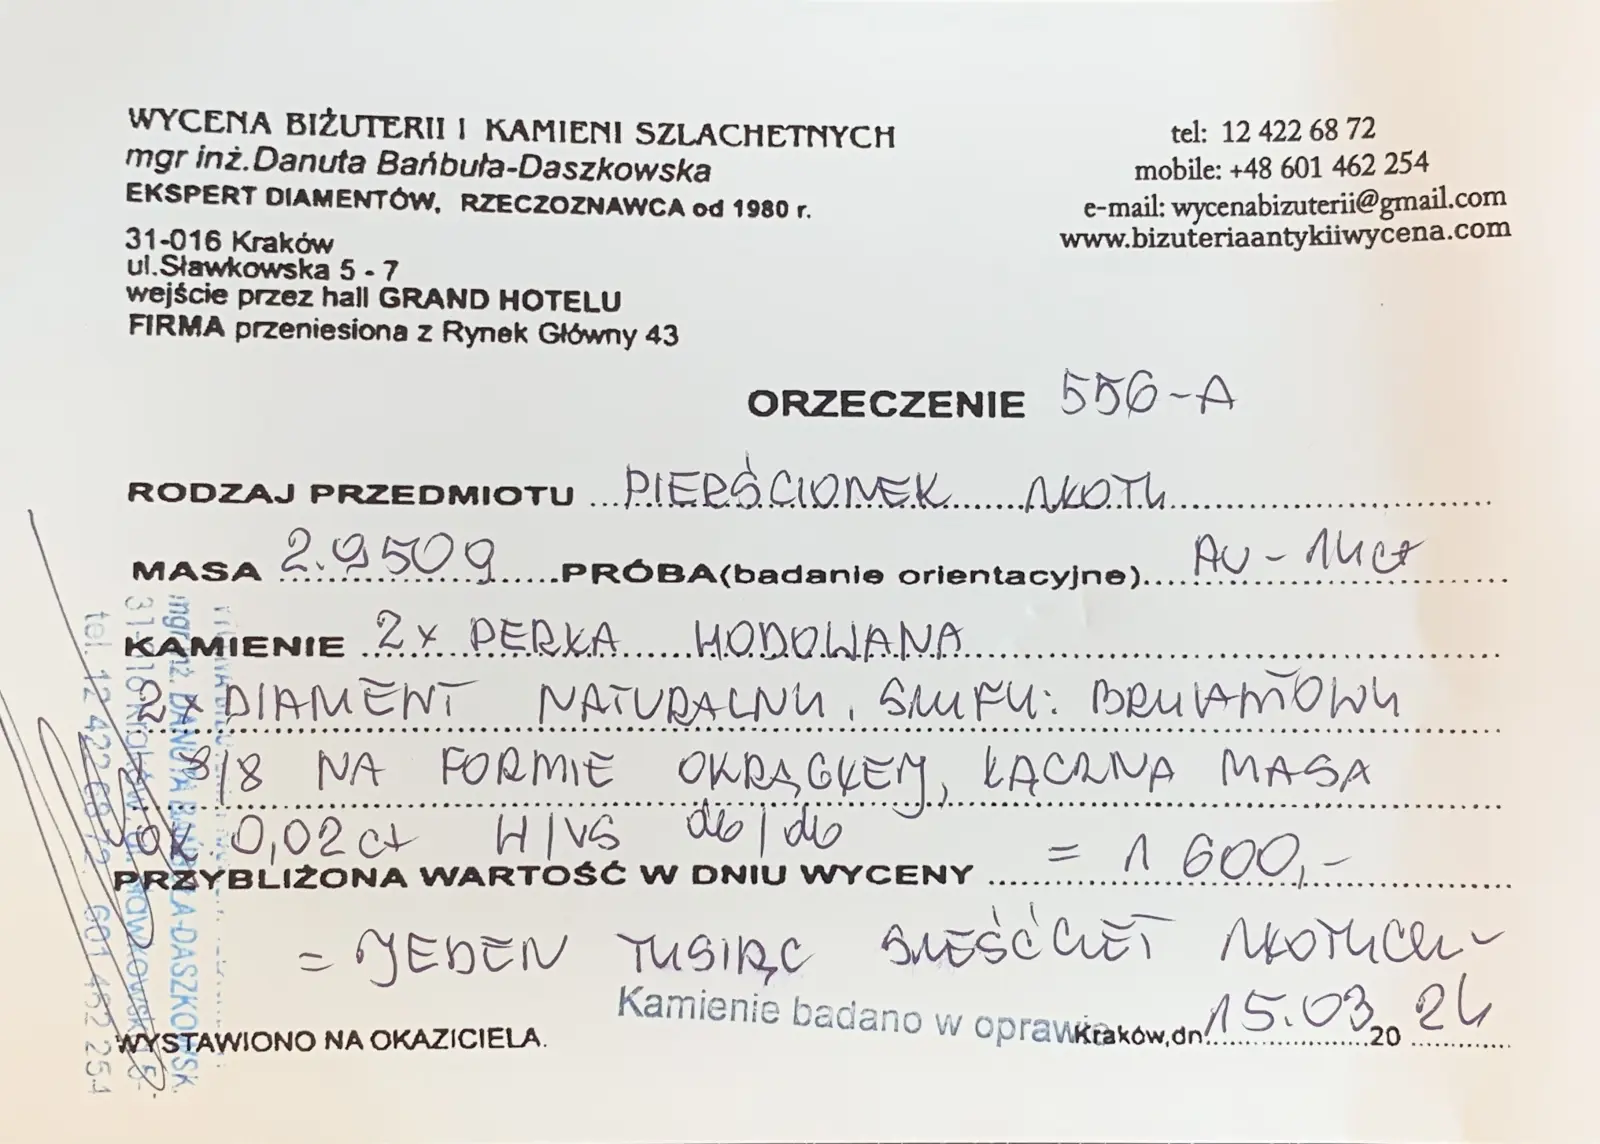 WYCENA BIŻUTERII I KAMIENI SZLACHETNYCH
mgr inż. Danuta Bańbuła-Daszkowska
EKSPERT DIAMENTÓW, RZECZOZNAWCA od 1980 r.
31-016 Kraków
ul. Sławkowska 5 - 7
wejście przez hall GRAND HOTELU
FIRMA przeniesiona z Rynek Główny 43
tel: 12 422 68 72
mobile: +48 601 462 254
e-mail: wycenabizuterii@gmail.com
www.bizuteriaantykiiwycena.com
ORZECZENIE 556-A
RODZAJ PRZEDMIOTU PIERŚCIONEK ZŁOTY
MASA 2.950g PRÓBA (badanie orientacyjne) AU - 14ct
KAMIENIE 2x PERŁA HODOWANA
2x DIAMENT NATURALNY, SZLIFY: BRYLANTOWY
8/8 NA FORMIE OKRĄGŁEJ, ŁĄCZNA MASA
ok. 0,02 ct H/VS db/db
PRZYBLIŻONA WARTOŚĆ W DNIU WYCENY = 1 600,-
= JEDEN TYSIĄC SZEŚĆSET ZŁOTYCH
Kamienie badano w oprawie
WYSTAWIONO NA OKAZICIELA.
Kraków, dn. 15.03. 20 24
mgr inż. DANUTA BAŃBUŁA-DASZKOWSKA
31-016 Kraków, ul. Sławkowska 5-
tel. 12 422 68 72 601 462 254